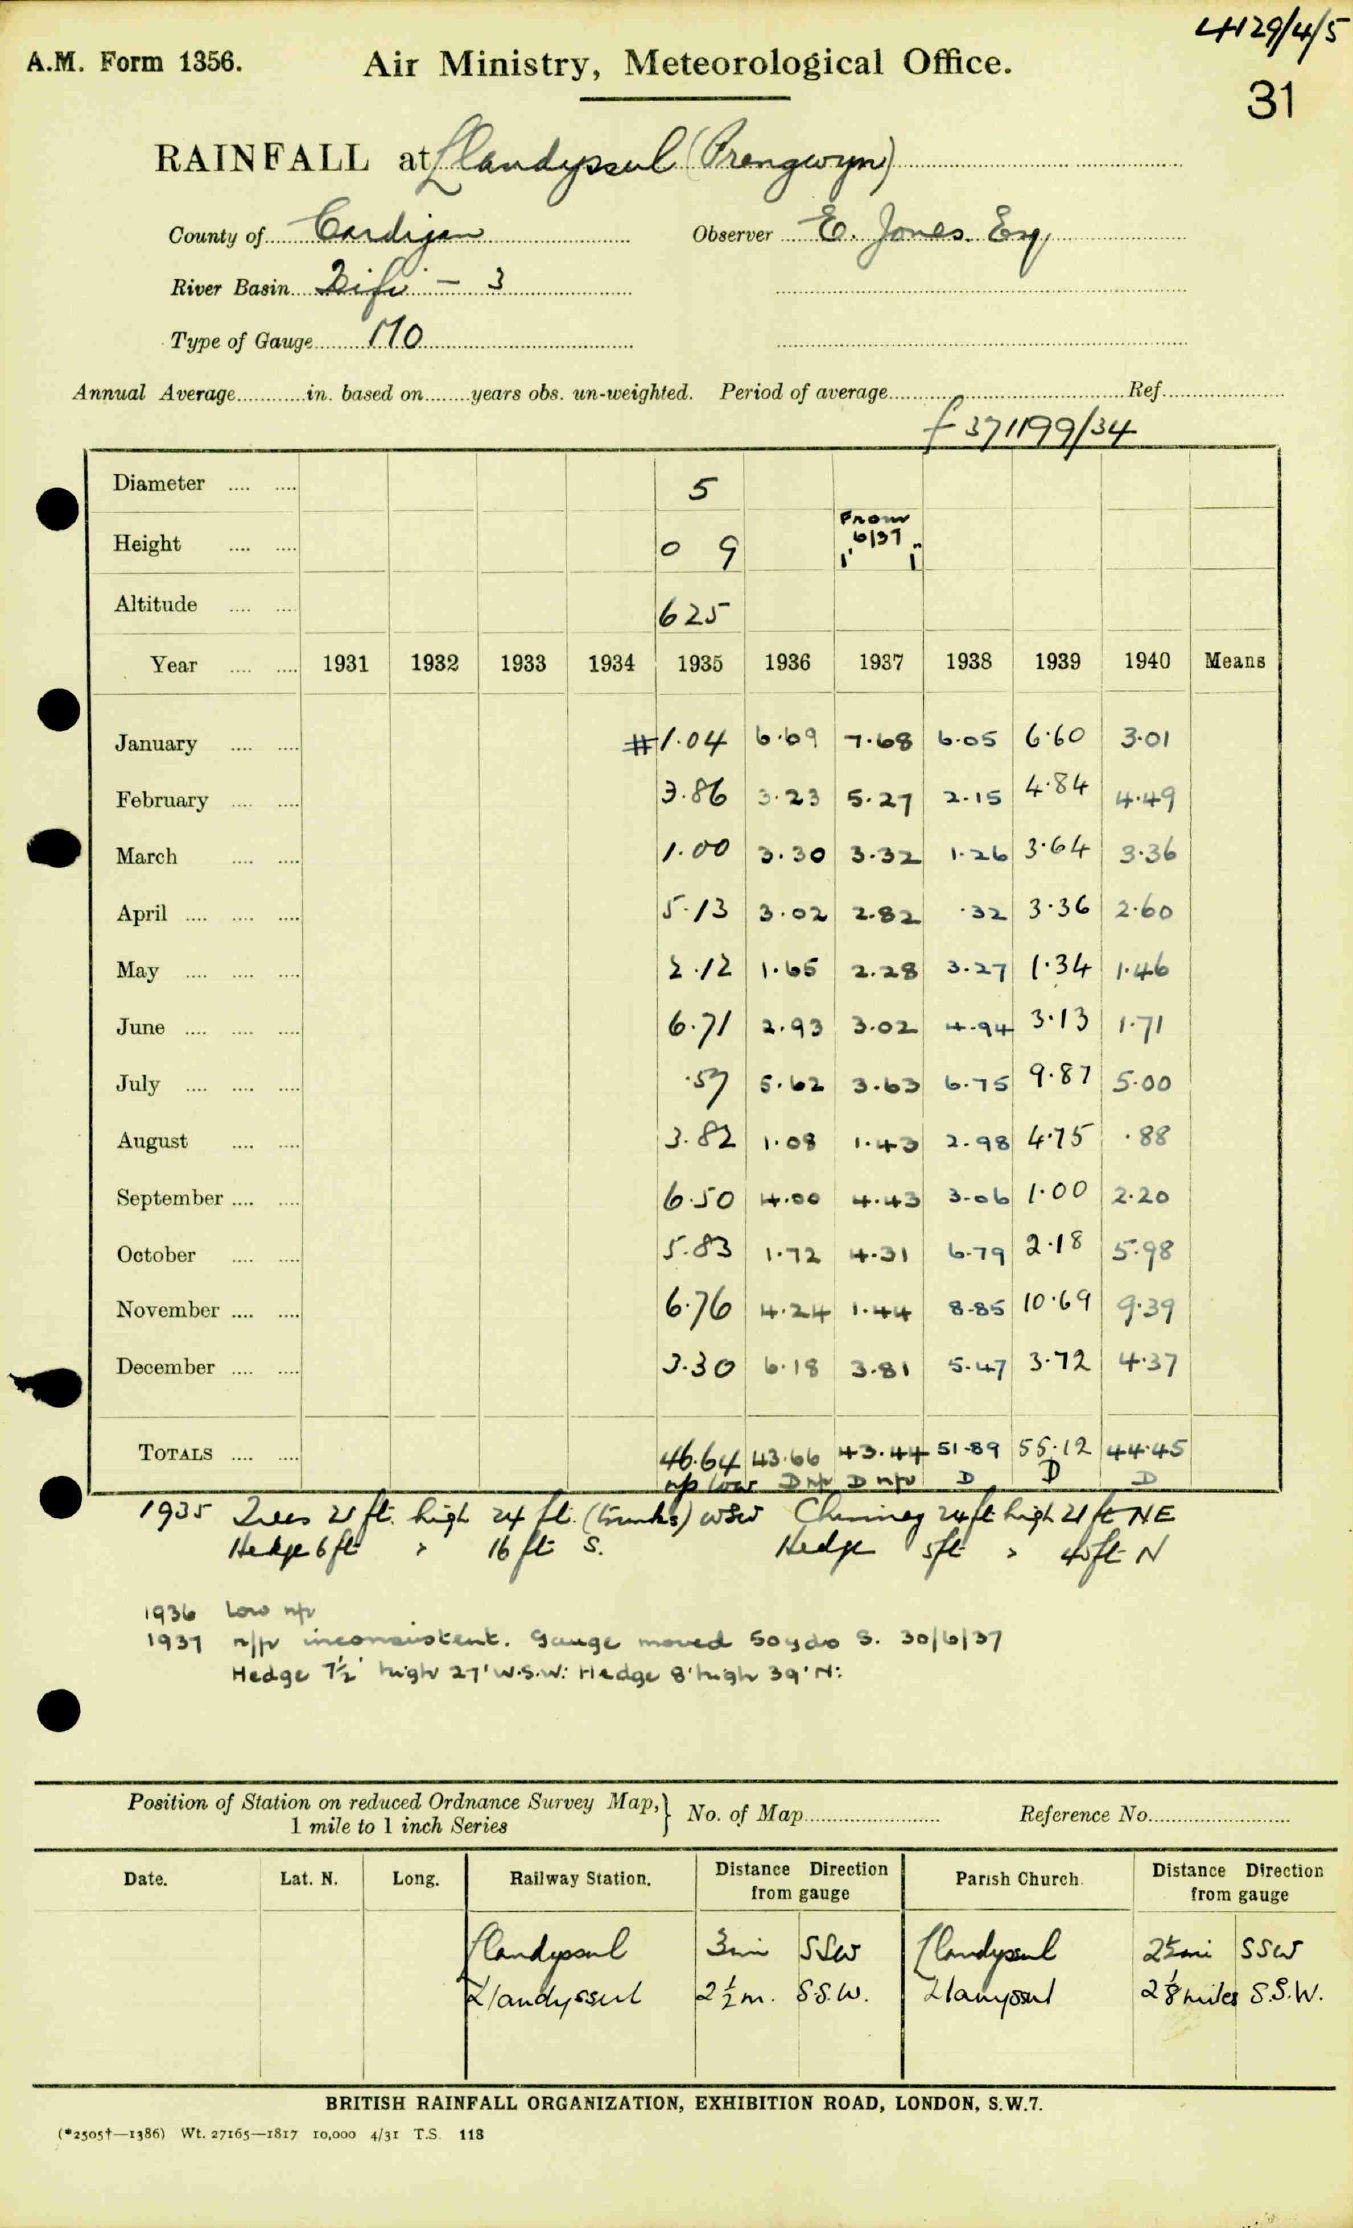 4129/4/5
A.M. Form 1356. Air Ministry, Meteorological Office.
31
RAINFALL at Llandyssul (Prengwyn)
County of Cardigan Observer E. Jones Esq,
River Basin Teifi - 3
Type of Gauge MO
Annual Average in. based on years obs. un-weighted. Period of average Ref.
f 371199/34
Diameter 5
Height 0 9 From 6/37 1' 1"
Altitude 625
Year 1931 1932 1933 1934 1935 1936 1937 1938 1939 1940 Means
January #1.04 6.69 7.68 6.05 6.60 3.01
February 3.86 3.23 5.27 2.15 4.84 4.49
March 1.00 3.30 3.32 1.26 3.64 3.36
April 5.13 3.02 2.82 .32 3.36 2.60
May 2.12 1.65 2.28 3.27 1.34 1.46
June 6.71 2.93 3.02 4.94 3.13 1.71
July .57 5.62 3.63 6.75 9.87 5.00
August 3.82 1.08 1.43 2.98 4.75 .88
September 6.50 4.00 4.43 3.06 1.00 2.20
October 5.83 1.72 4.31 6.79 2.18 5.98
November 6.76 4.24 1.44 8.85 10.69 9.39
December 3.30 6.18 3.81 5.47 3.72 4.37
TOTALS 46.64 43.66 43.44 51.89 55.12 44.45
n/p low D n/p D n/p D D D
1935 Trees 21 ft. high 24 ft. (trunks) WSW Chimney 24 ft high 21 ft NE
Hedge 6 ft " 16 ft S. Hedge 5 ft " 40 ft N
1936 Low n/p
1937 n/p inconsistent. Gauge moved 50 yds S. 30/6/37
Hedge 7½' high 27' W.S.W: Hedge 8' high 39' N:
Position of Station on reduced Ordnance Survey Map, 1 mile to 1 inch Series } No. of Map Reference No.
Date. Lat. N. Long. Railway Station. Distance Direction from gauge Parish Church. Distance Direction from gauge
Llandyssul 3 mi SSW Llandyssul 2½ mi SSW
Llandyssul 2½ m. S.S.W. Llanyssul 2⅛ miles S.S.W.
BRITISH RAINFALL ORGANIZATION, EXHIBITION ROAD, LONDON, S.W.7.
(*2505†—1386) Wt. 27165—1817 10,000 4/31 T.S. 118